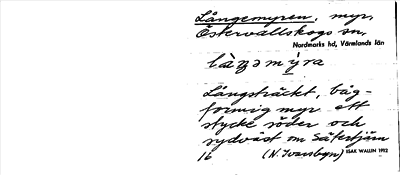 Långemyren, myr,
Östervallskogs sn,
Nordmarks hd, Värmlands län
Långsträckt, båg-
formig myr ett
stycke söder och
sydväst om Sätertjärn
16 (N. Ivarsbyn) ISAK WALLIN 1992